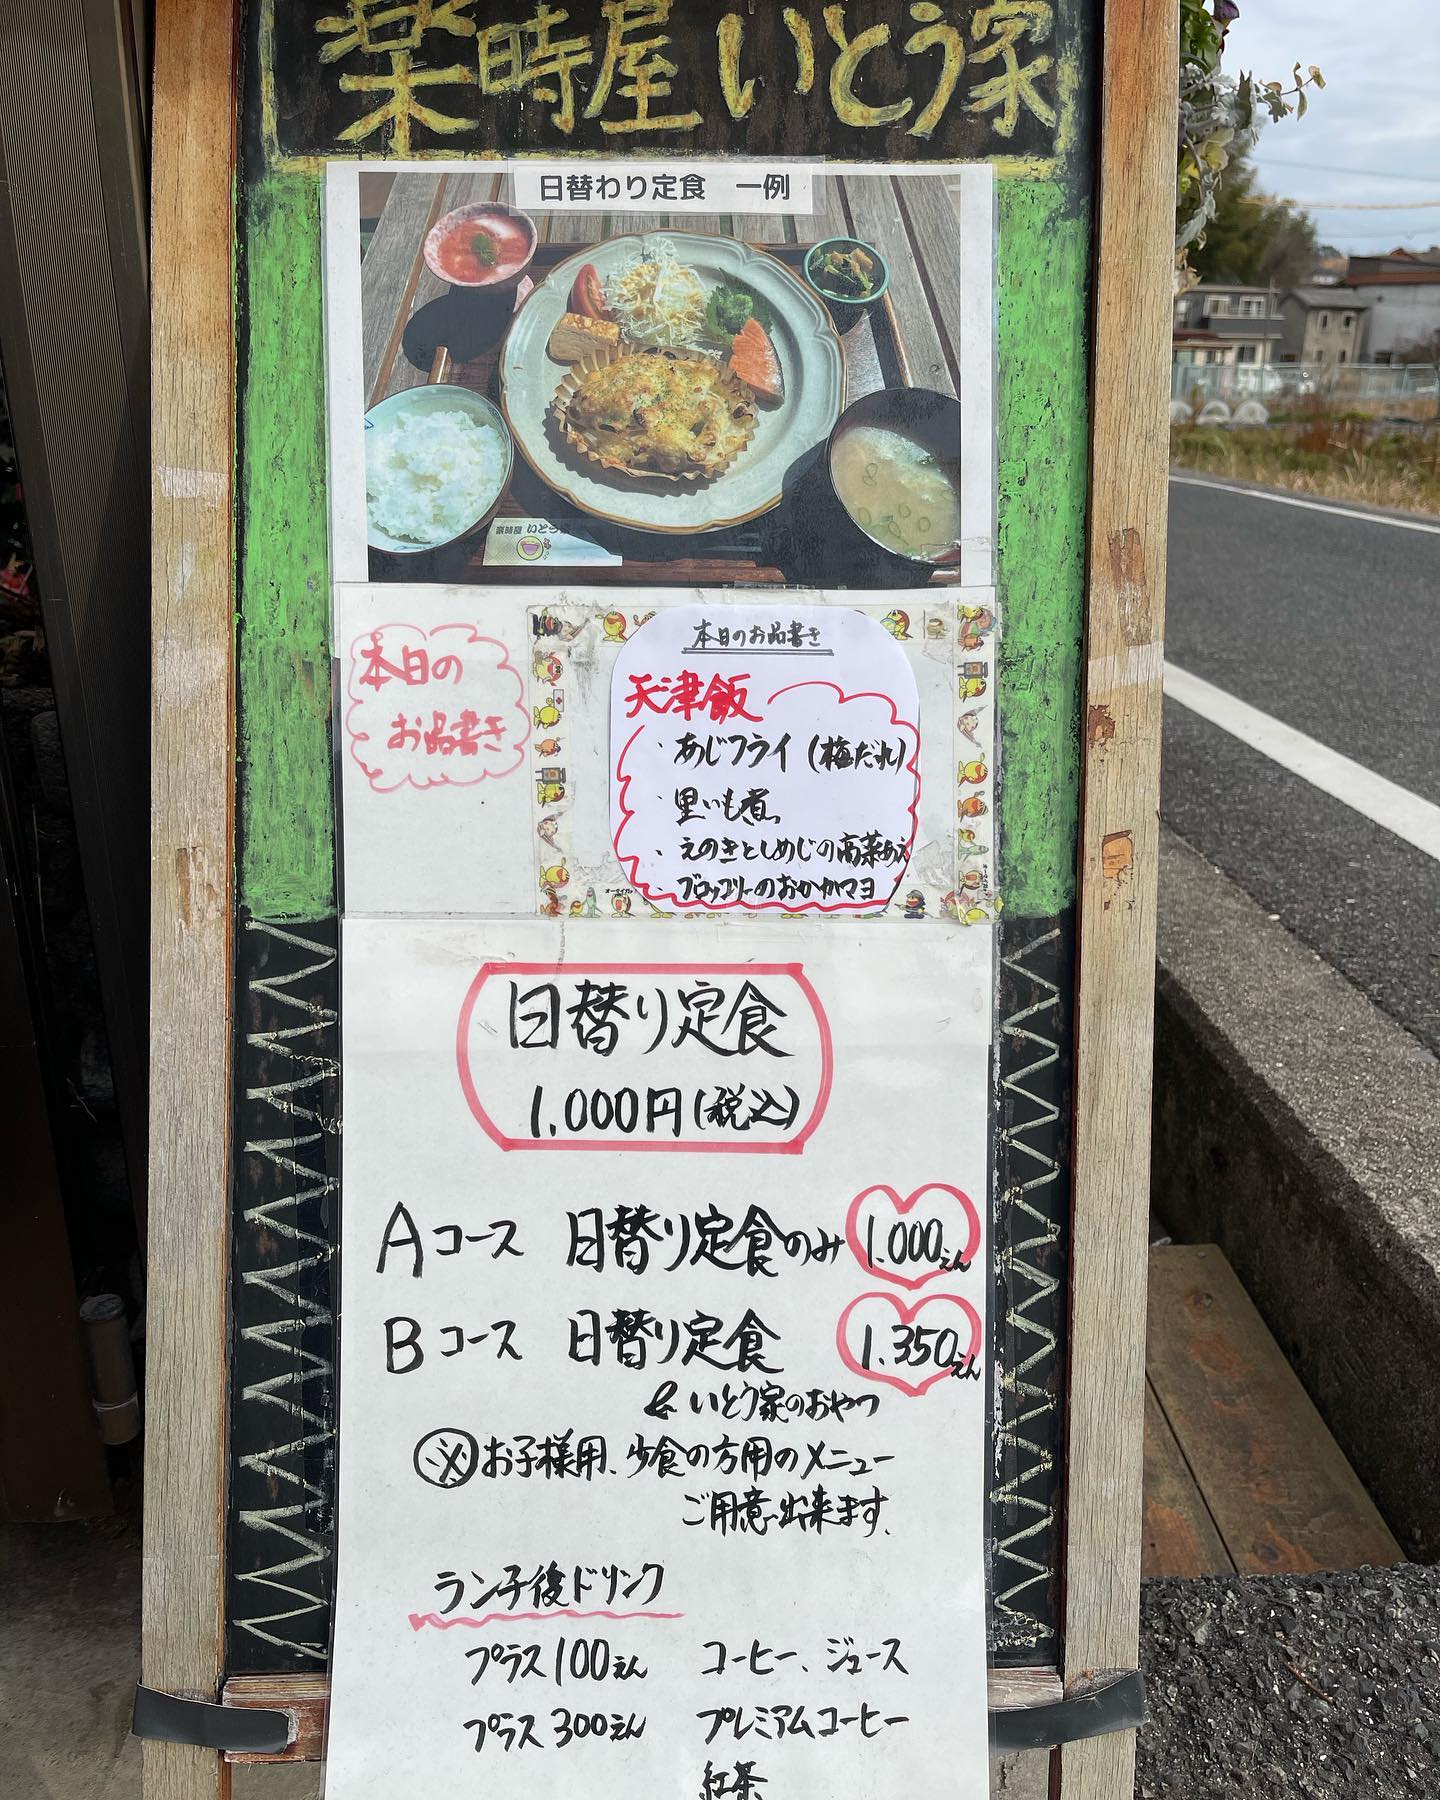 楽時屋 いとう家
日替わり定食 一例
楽時屋 いとう家
本日の
お品書き
本日のお品書き
天津飯
・あじフライ(梅だれ)
・里いも煮
・えのきとしめじの高菜あえ
・ブロッコリーのおかかマヨ
日替り定食
1,000円(税込)
Aコース 日替り定食のみ 1,000えん
Bコース 日替り定食 1,350えん
& いとう家のおやつ
※お子様用、少食の方用のメニュー
ご用意出来ます。
ランチ後ドリンク
プラス100えん コーヒー、ジュース
プラス300えん プレミアムコーヒー
紅茶